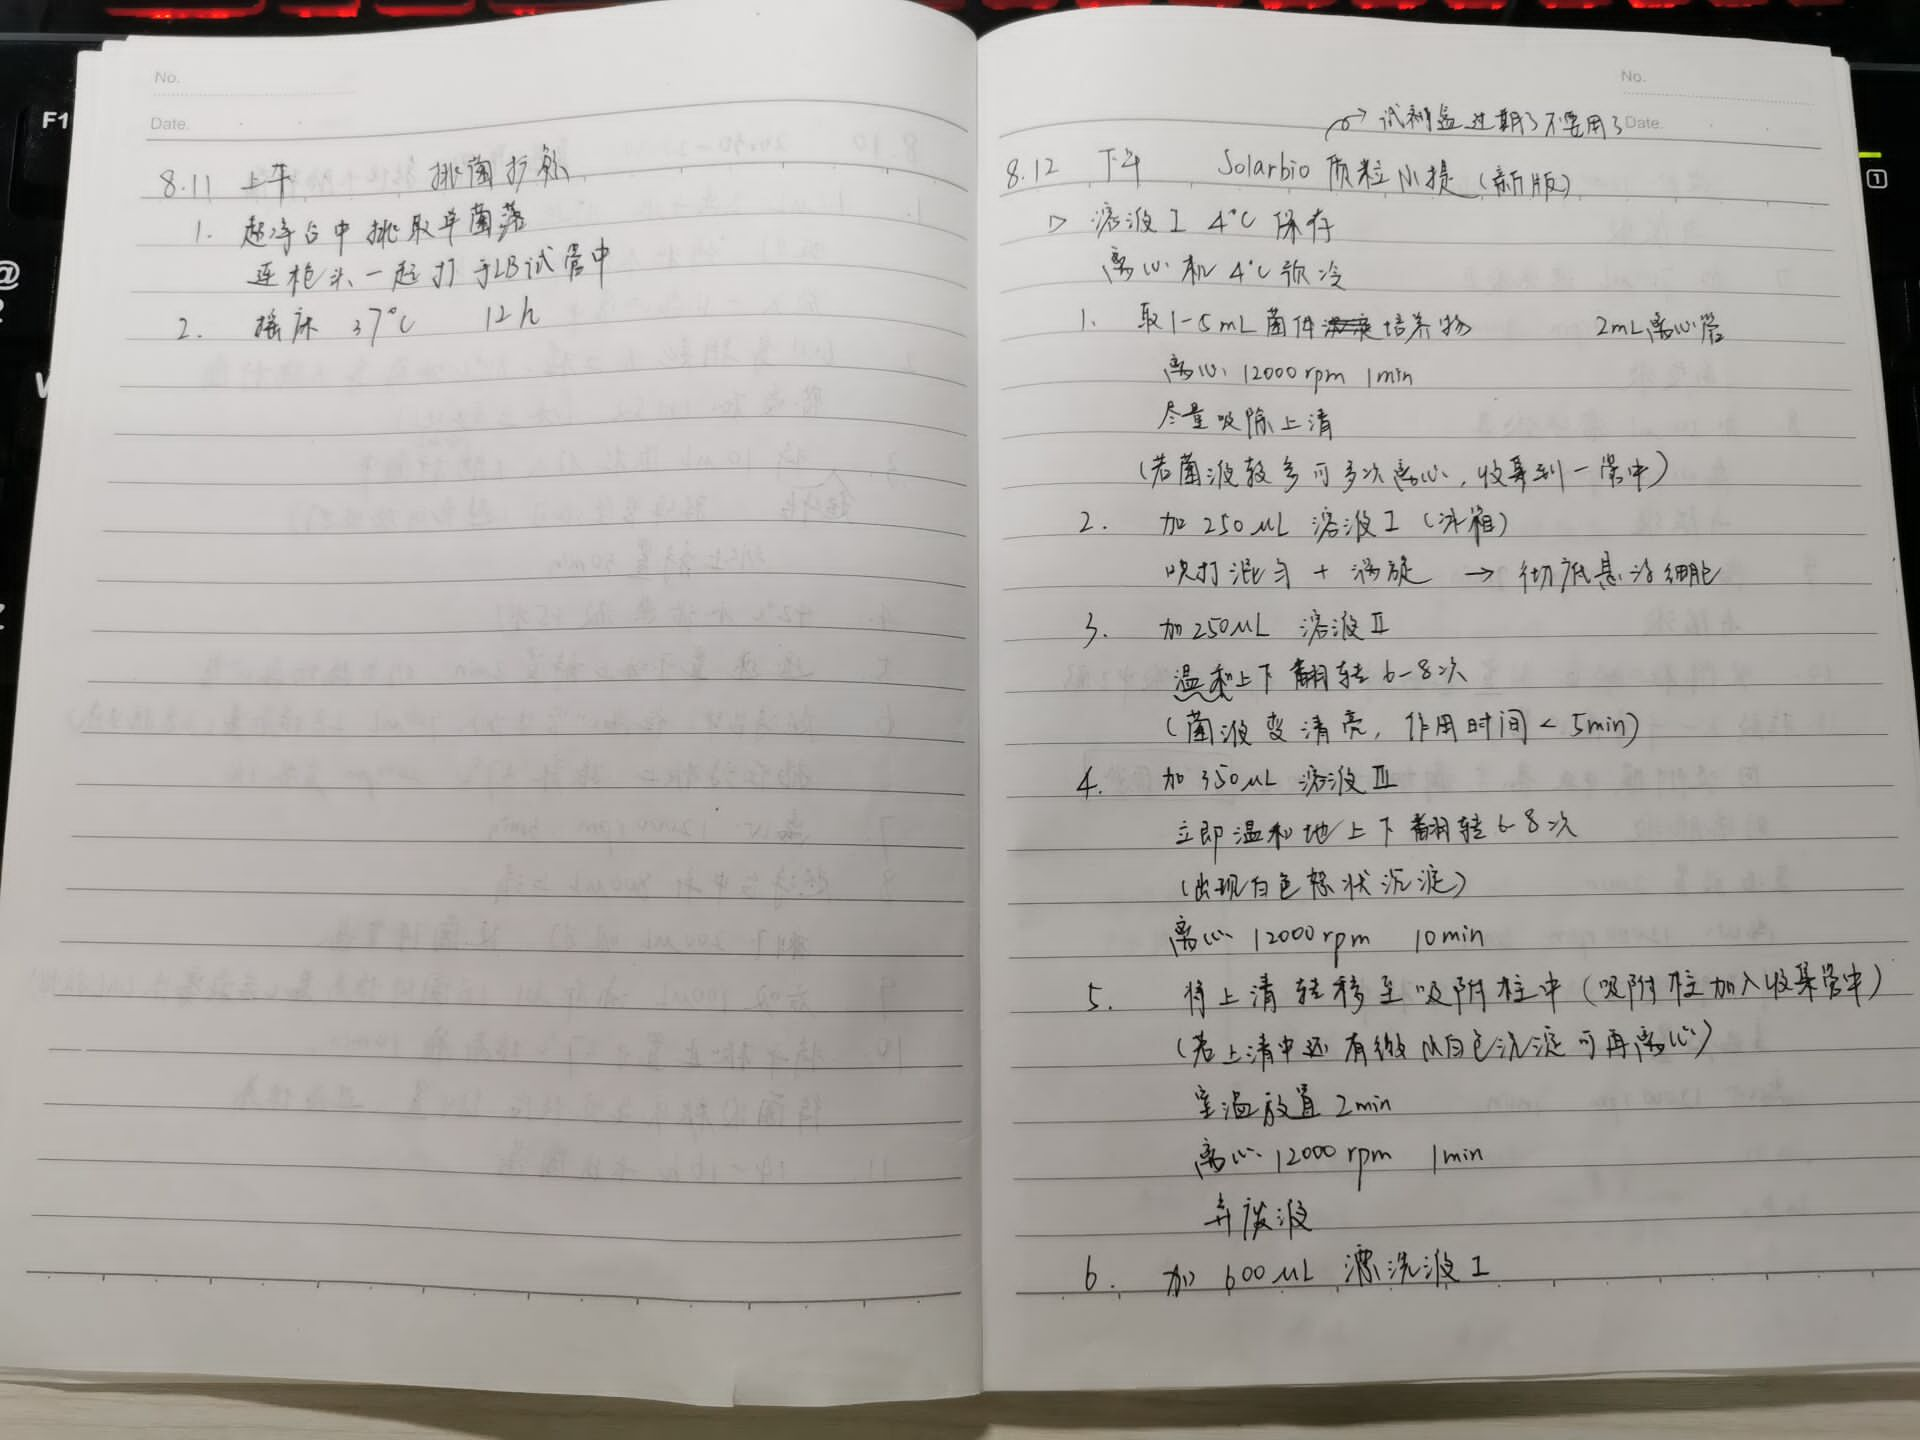 No.
Date.
8.11 上午 挑菌扩繁
1. 超净台中挑取单菌落
连枪头一起打于LB试管中
2. 摇床 37°C 12h
No.
Date.
→ 试剂盒过期了不要用了
8.12 下午 Solarbio 质粒小提（新版）
▷ 溶液I 4°C 保存
离心机 4°C 预冷
1. 取1-5mL菌体培养物 2mL离心管
离心 12000rpm 1min
尽量吸除上清
（若菌液较多可多次离心，收集到一管中）
2. 加250μL 溶液I（冰箱）
吹打混匀 + 涡旋 → 彻底悬浮细胞
3. 加250μL 溶液II
温和上下翻转6-8次
（菌液变清亮，作用时间 < 5min）
4. 加350μL 溶液III
立即温和地上下翻转6-8次
（出现白色絮状沉淀）
离心 12000rpm 10min
5. 将上清转移至吸附柱中（吸附柱加入收集管中）
（若上清中还有微小白色沉淀可再离心）
室温放置2min
离心 12000rpm 1min
弃废液
6. 加600μL 漂洗液I
F1
@
1